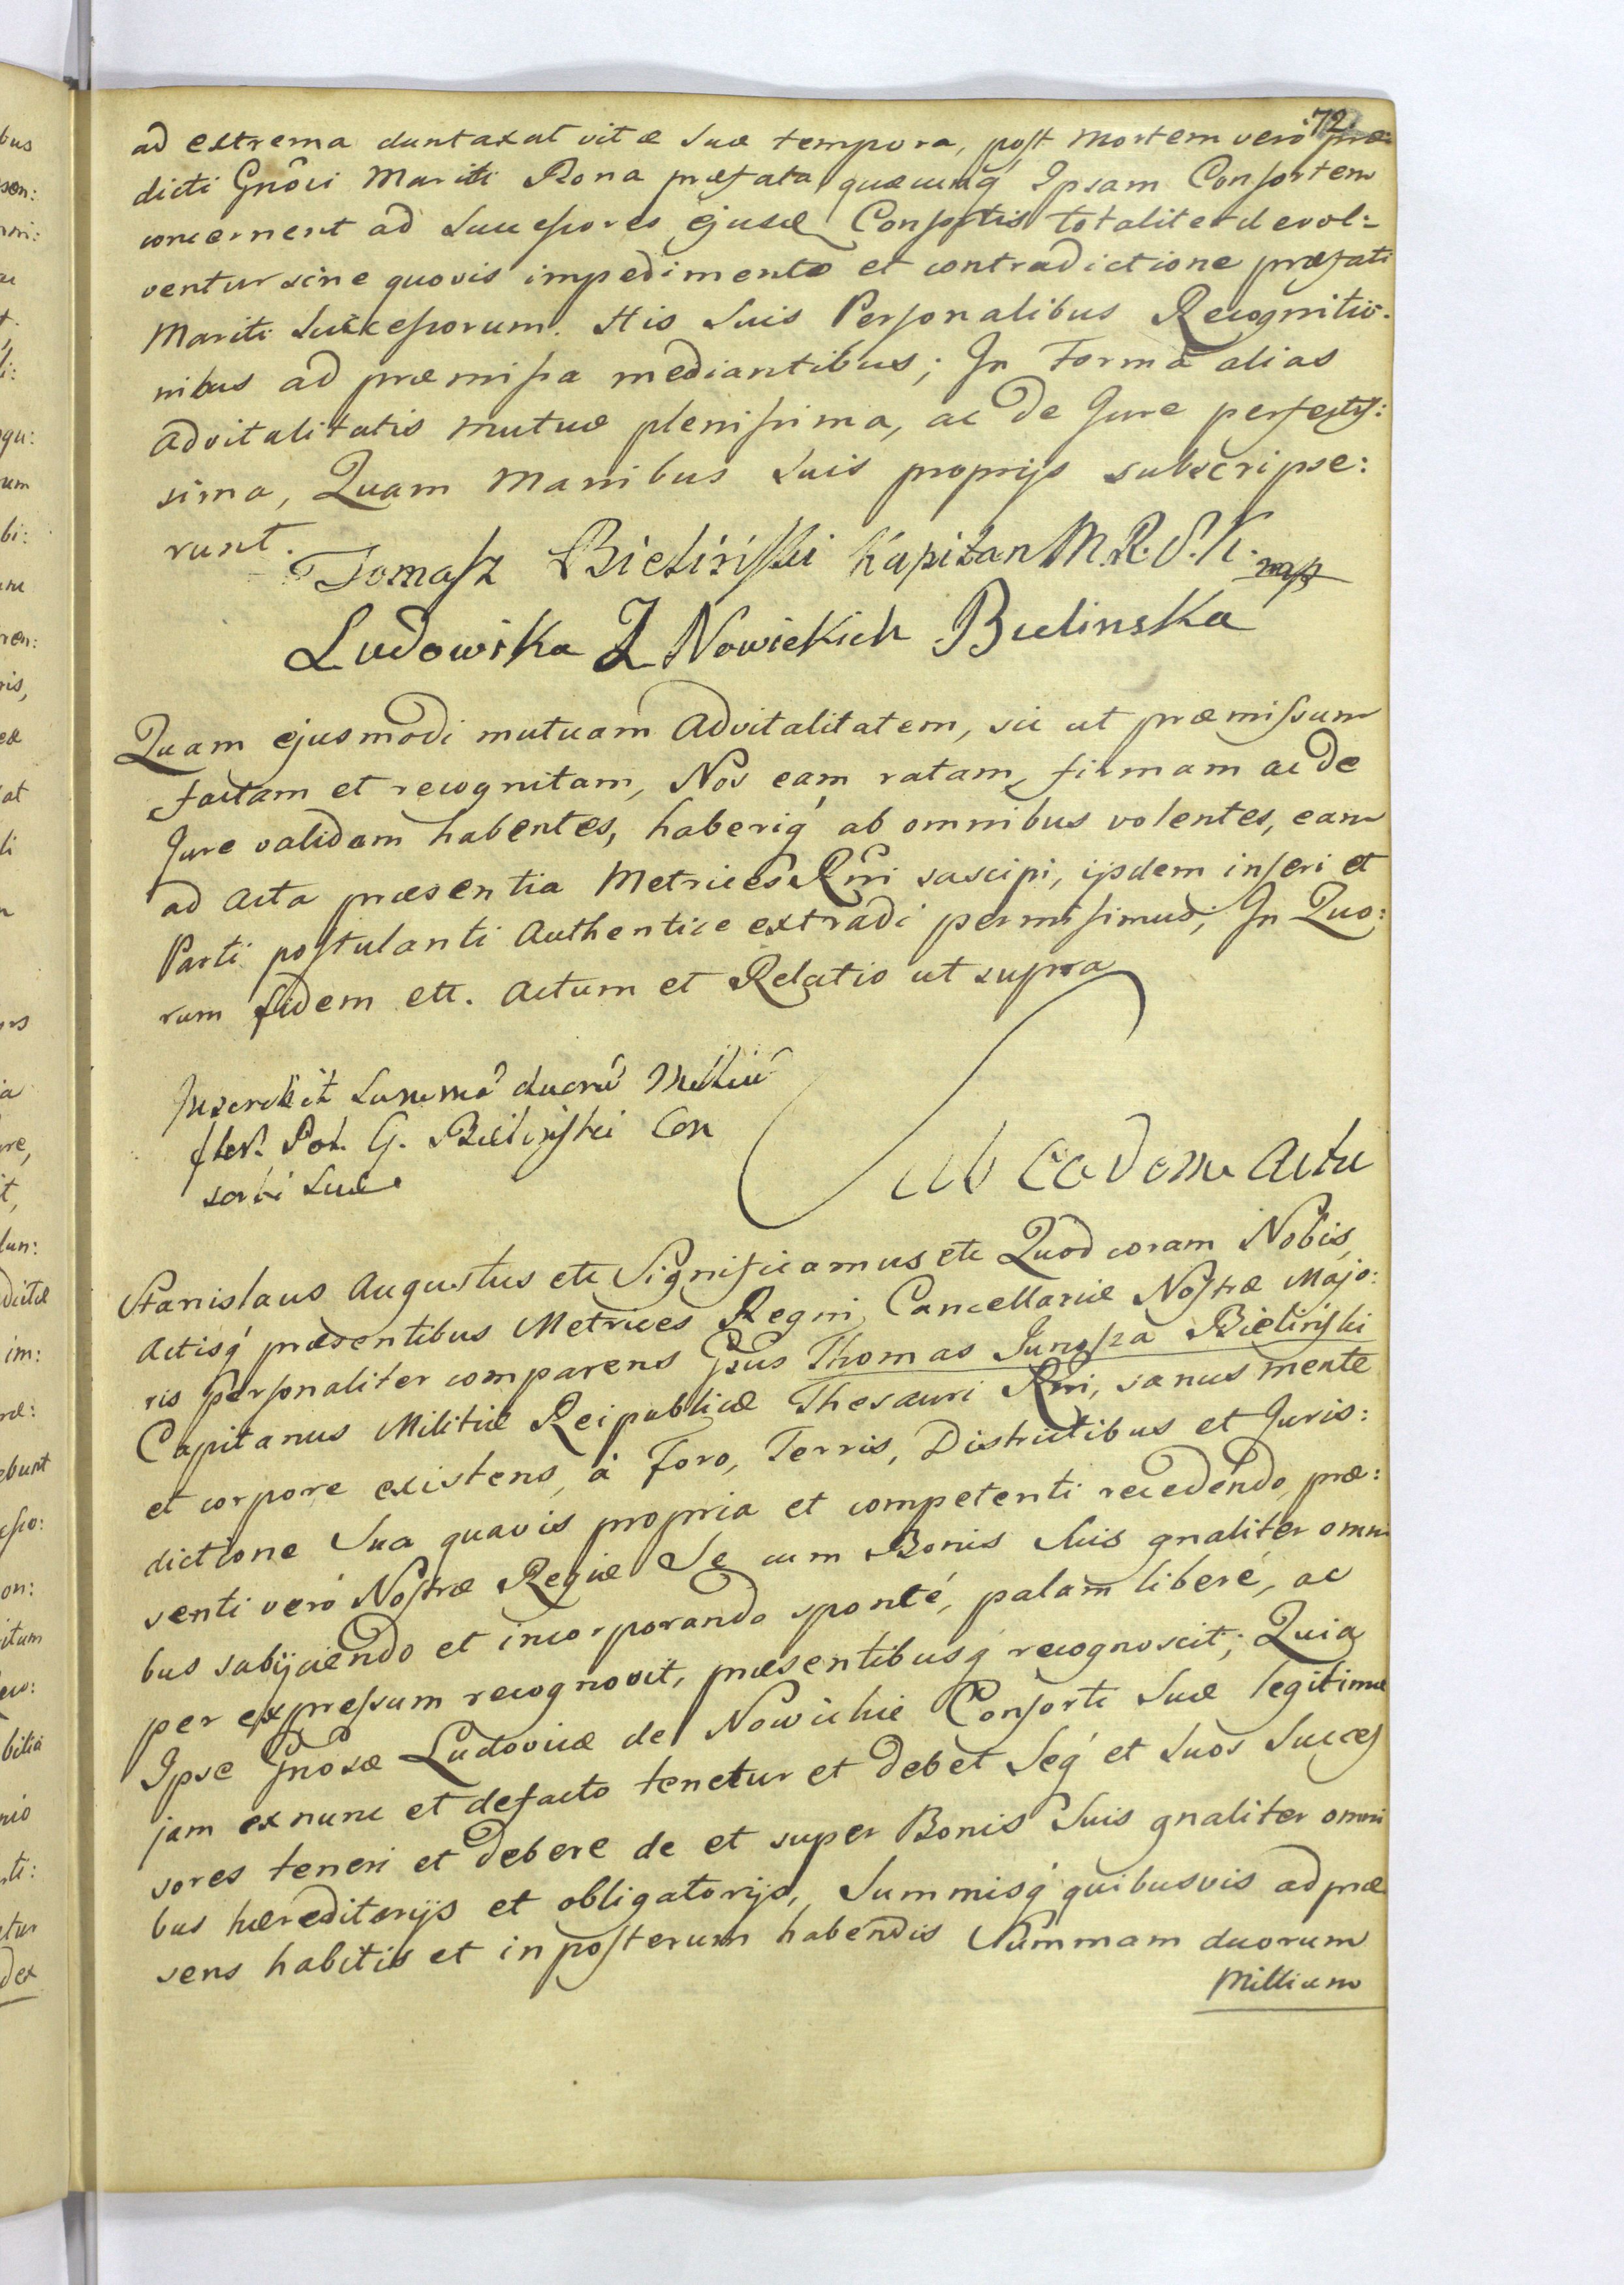 72.
ad extrema duntaxat vitæ suæ tempora, post Mortem verò præ:
dicti Gnôsi Mariti Bona præfata quæcunq́ Ipsam Consortem
concernent ad Successores ejusd Consortis totaliter devol:
ventur sine quovis impedimento et contradictione præfati
Mariti Successorum. His Suis Personalibus Recognitio:
nibus ad præmissa mediantibus; In Formâ alias
advitalitatis mutuæ plenissima, ac de Jure perfectis:
sima, Quam Manibus suis proprijs subscripse:
runt.
Tomasz Bieliński Kapitan M.R.S.K. mp
Ludowika Z Nowickich Bielinska
Quam ejusmodi mutuam advitalitatem, sic ut præmissum
factam et recognitam, Nos eam ratam, firmam ac de
Jure validam habentes, haberiq́ ab omnibus volentes, eam
ad acta præsentia Metrices Rni suscipi, ijsdem inseri et
Parti postulanti authentice extradi permisimus; In Quo:
rum fidem ett. Actum et Relatio ut supra
Inscribit Summã duorũ Milliũ
flor. Pol. G. Bieliński Con
sorti Suæ
Sub eodem actu
Stanislaus Augustus ett Significamus ett Quod coram Nobis,
Actisq́ præsentibus Metrices Regni Cancellariæ Nostræ Majo:
ris Personaliter comparens Gsus Thomas Junosza Bieliński
Capitanus Militiæ Reipublicæ Thesauri Rni, sanus mente
et corpore existens, à Foro, Terris, Districtibus et Juris:
dictione Sua quavis propria et competenti recedendo, præ:
senti verò Nostræ Regiæ Se cum Bonis Suis gnaliter omni
bus subijciendo et incorporando sponté, palam liberé, ac
per expressum recognovit, præsentibusq́ recognoscit; Quia
Ipse Gnosæ Ludovicæ de Nowickie Consorti Suæ legitimæ
jam ex nunc et defacto tenetur et debet Seq́ et Suos Succes
sores teneri et debere de et super Bonis Suis gnaliter omni
bus hæreditarijs et obligatorijs, Summisq́ quibusvis ad præ
sens habitis et in posterum habendis Summam duorum
Millium